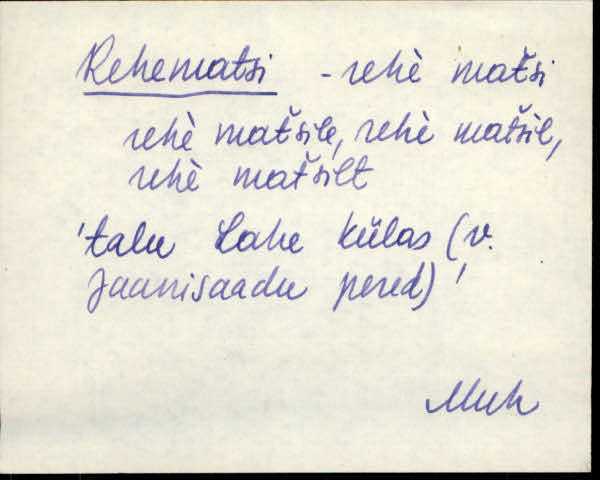 Rehematsi - rehè mat̆si
rehè mat̆sile, rehè mat̆sil,
rehè mat̆silt
'talu Lahe külas (v.
Jaanisaadu pered)'
Muh